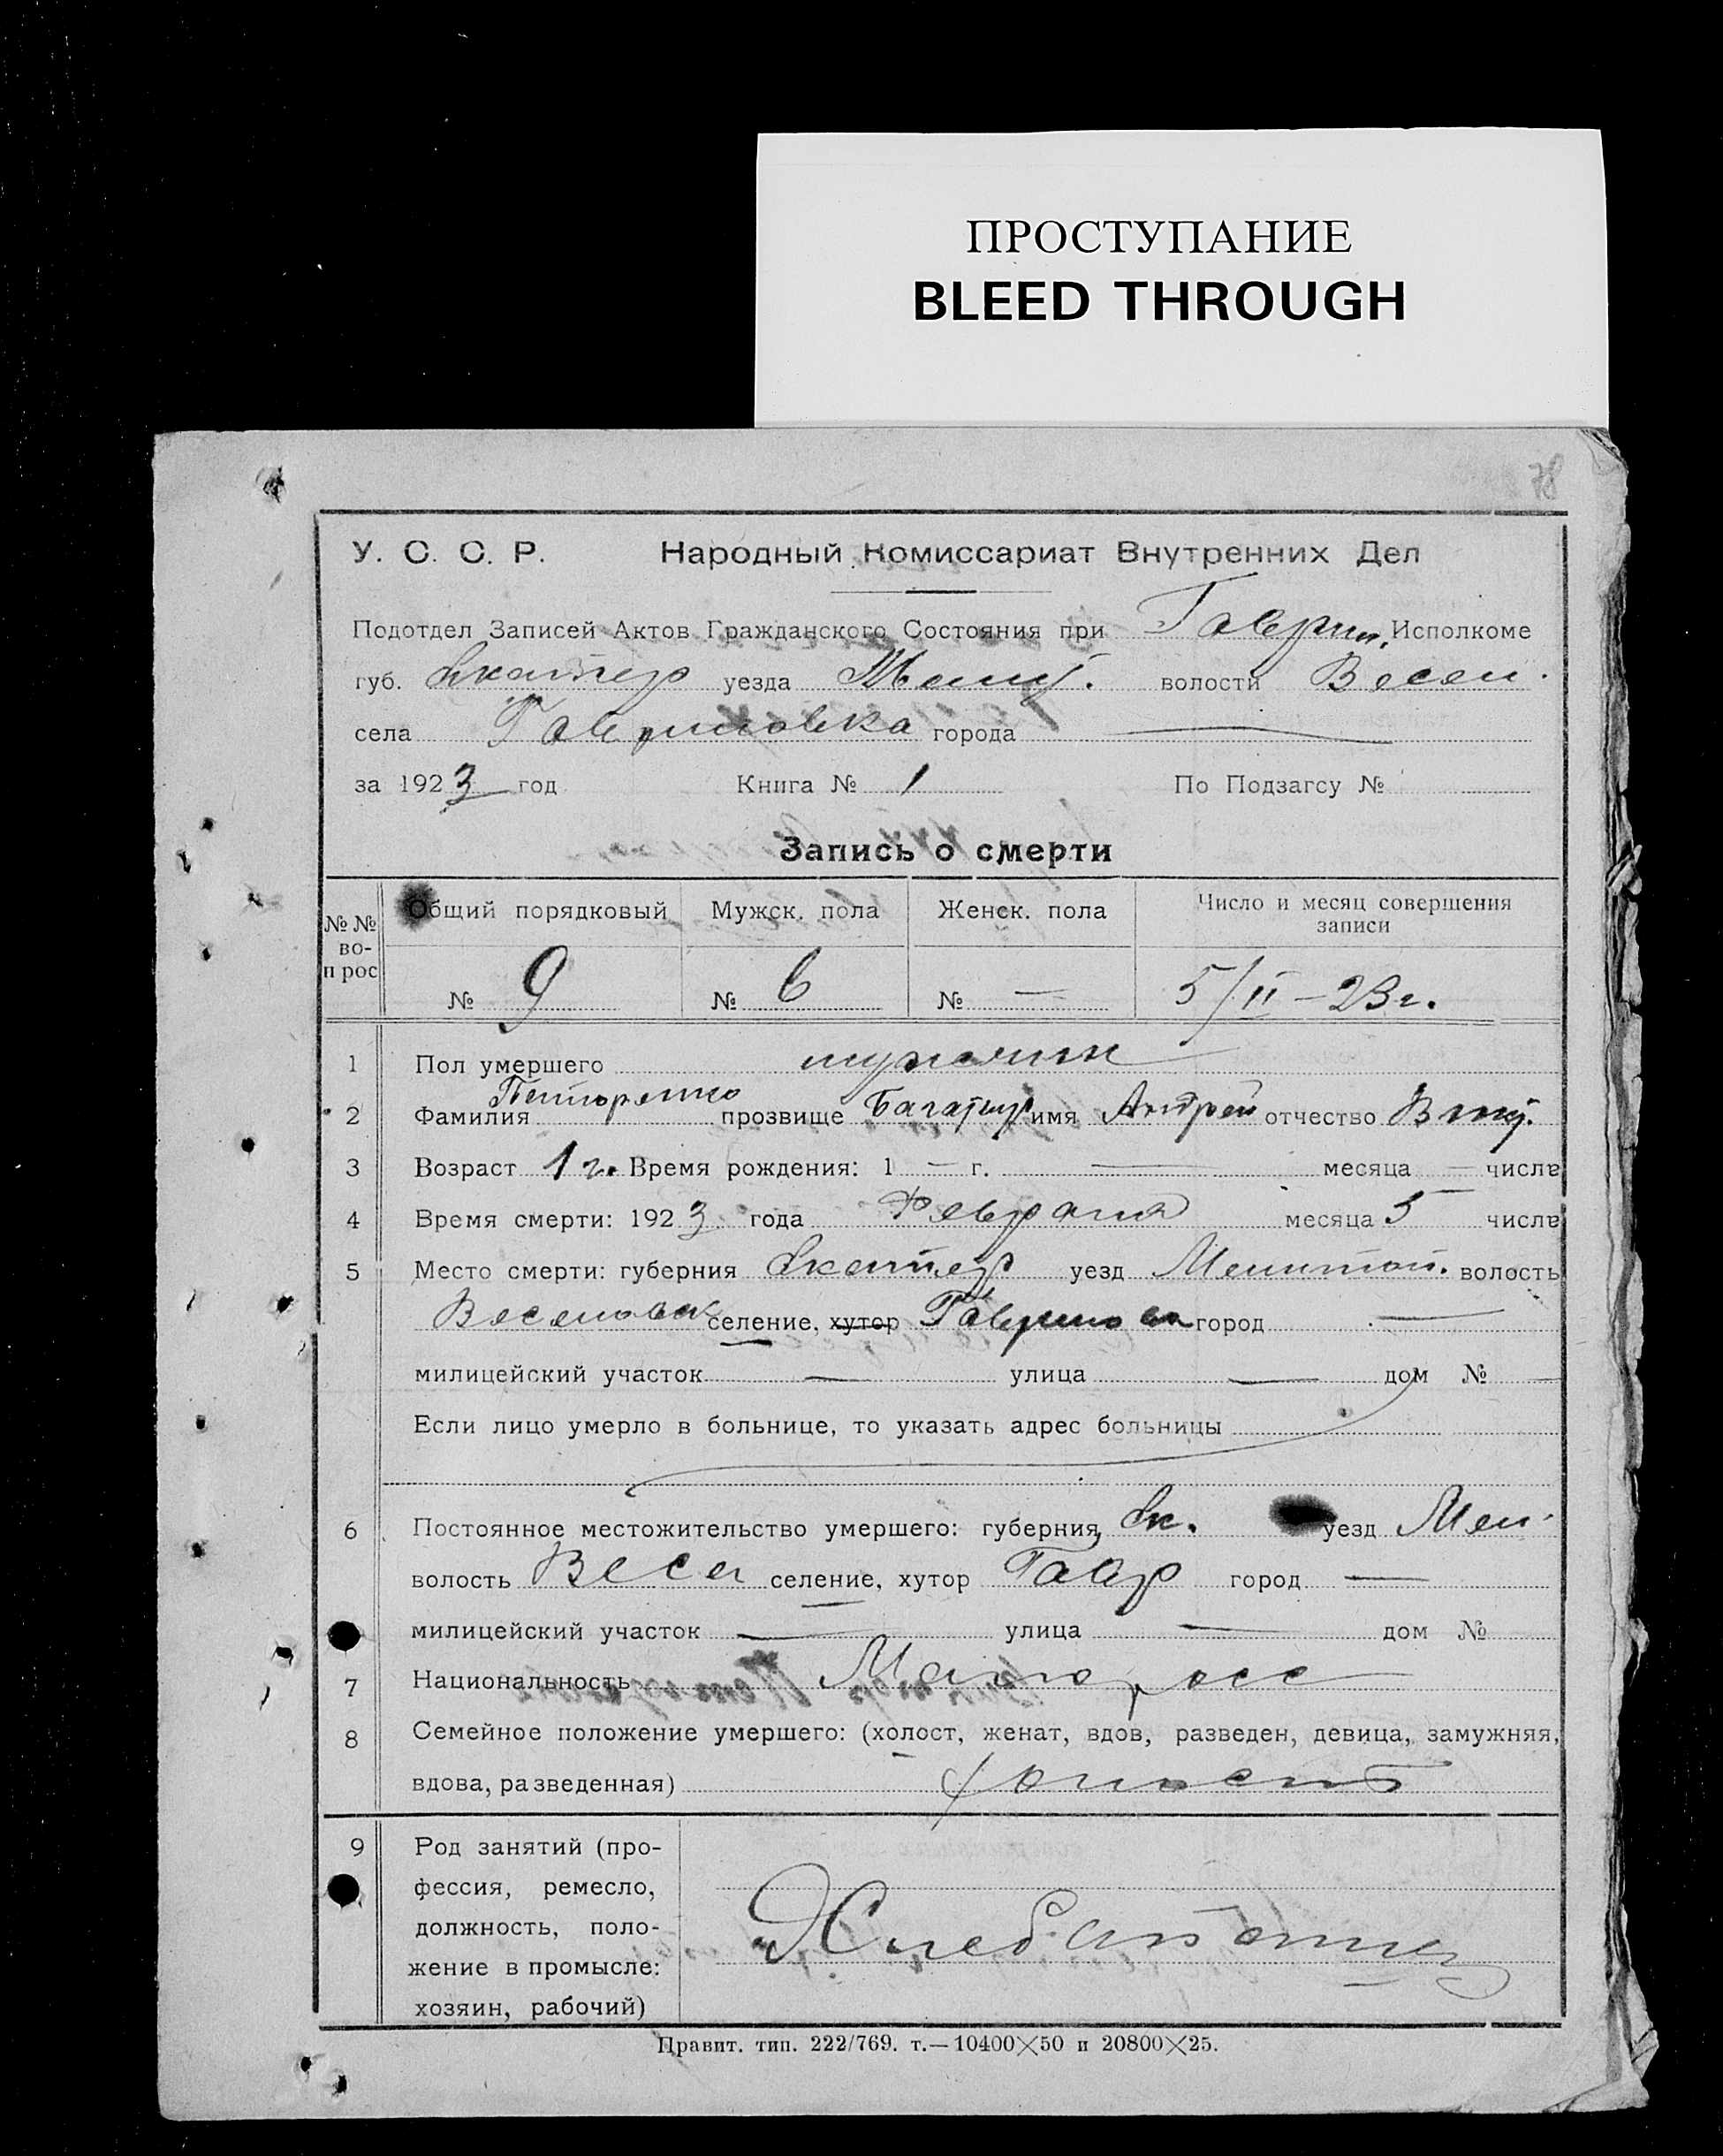 ПРОСТУПАНИЕ
BLEED THROUGH
78
У. С. С. Р. Народный Комиссариат Внутренних Дел
Подотдел Записей Актов Гражданского Состояния при Гаврил. Исполкоме
губ. Екатер уезда Мелит. волости Весел.
села Гавриловка города —
за 1923 год Книга № 1 По Подзагсу №
Запись о смерти
№№ во-прос Общий порядковый Мужск. пола Женск. пола Число и месяц совершения записи
№ 9 № 6 № — 5/II – 23 г.
1 Пол умершего мужчин
2 Фамилия прозвище имя Андрей отчество
3 Возраст 1 г. Время рождения: 1 — г. — месяца — числа
4 Время смерти: 1923 года Февраля месяца 5 числа
5 Место смерти: губерния Екатер уезд Мелитоп. волость
Веселовск селение, хутор город —
милицейский участок — улица — дом № —
Если лицо умерло в больнице, то указать адрес больницы
6 Постоянное местожительство умершего: губерния Ек. уезд Мел.
волость Весел селение, хутор Гавр город —
милицейский участок — улица — дом №
7 Национальность Малоросс
8 Семейное положение умершего: (холост, женат, вдов, разведен, девица, замужняя,
вдова, разведенная) холост
9 Род занятий (про-
фессия, ремесло,
должность, поло-
жение в промысле:
хозяин, рабочий)
Правит. тип. 222/769. т.—10400×50 и 20800×25.